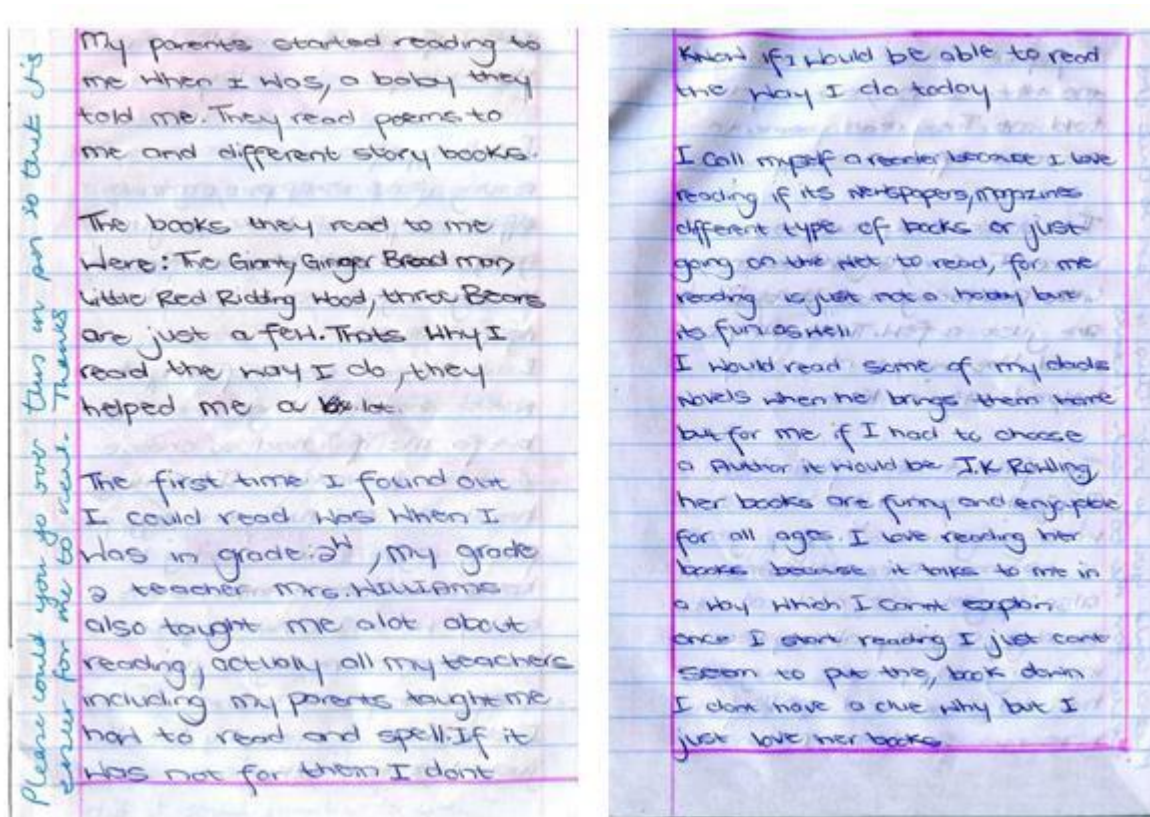 Please could you go over this in pen so that it is
easier for me to read. Thanks
My parents started reading to
me when I was, a baby they
told me. They read poems to
me and different story books.
The books they read to me
were: The Giant, Ginger Bread man,
Little Red Ridding Hood, three Bears
are just a few. Thats why I
read the way I do, they
helped me a lot.
The first time I found out
I could read was when I
was in grade:2, my grade
2 teacher Mrs. WILLIAMS
also taught me alot about
reading, actually all my teachers
including my parents taught me
how to read and spell. If it
was not for them I dont
know if I would be able to read
the way I do today
I call myself a reader because I love
reading if its newspapers, magazines
different type of books or just
going on the net to read, for me
reading is just not a hobby but
its fun as well
I would read some of my dads
novels when he brings them home
but for me if I had to choose
a Author it would be J.K Rowling,
her books are funny and enjoyable
for all ages. I love reading her
books because it talks to me in
a way which I cannt explain
once I start reading I just cant
seem to put the, book down
I dont have a clue why but I
just love her books